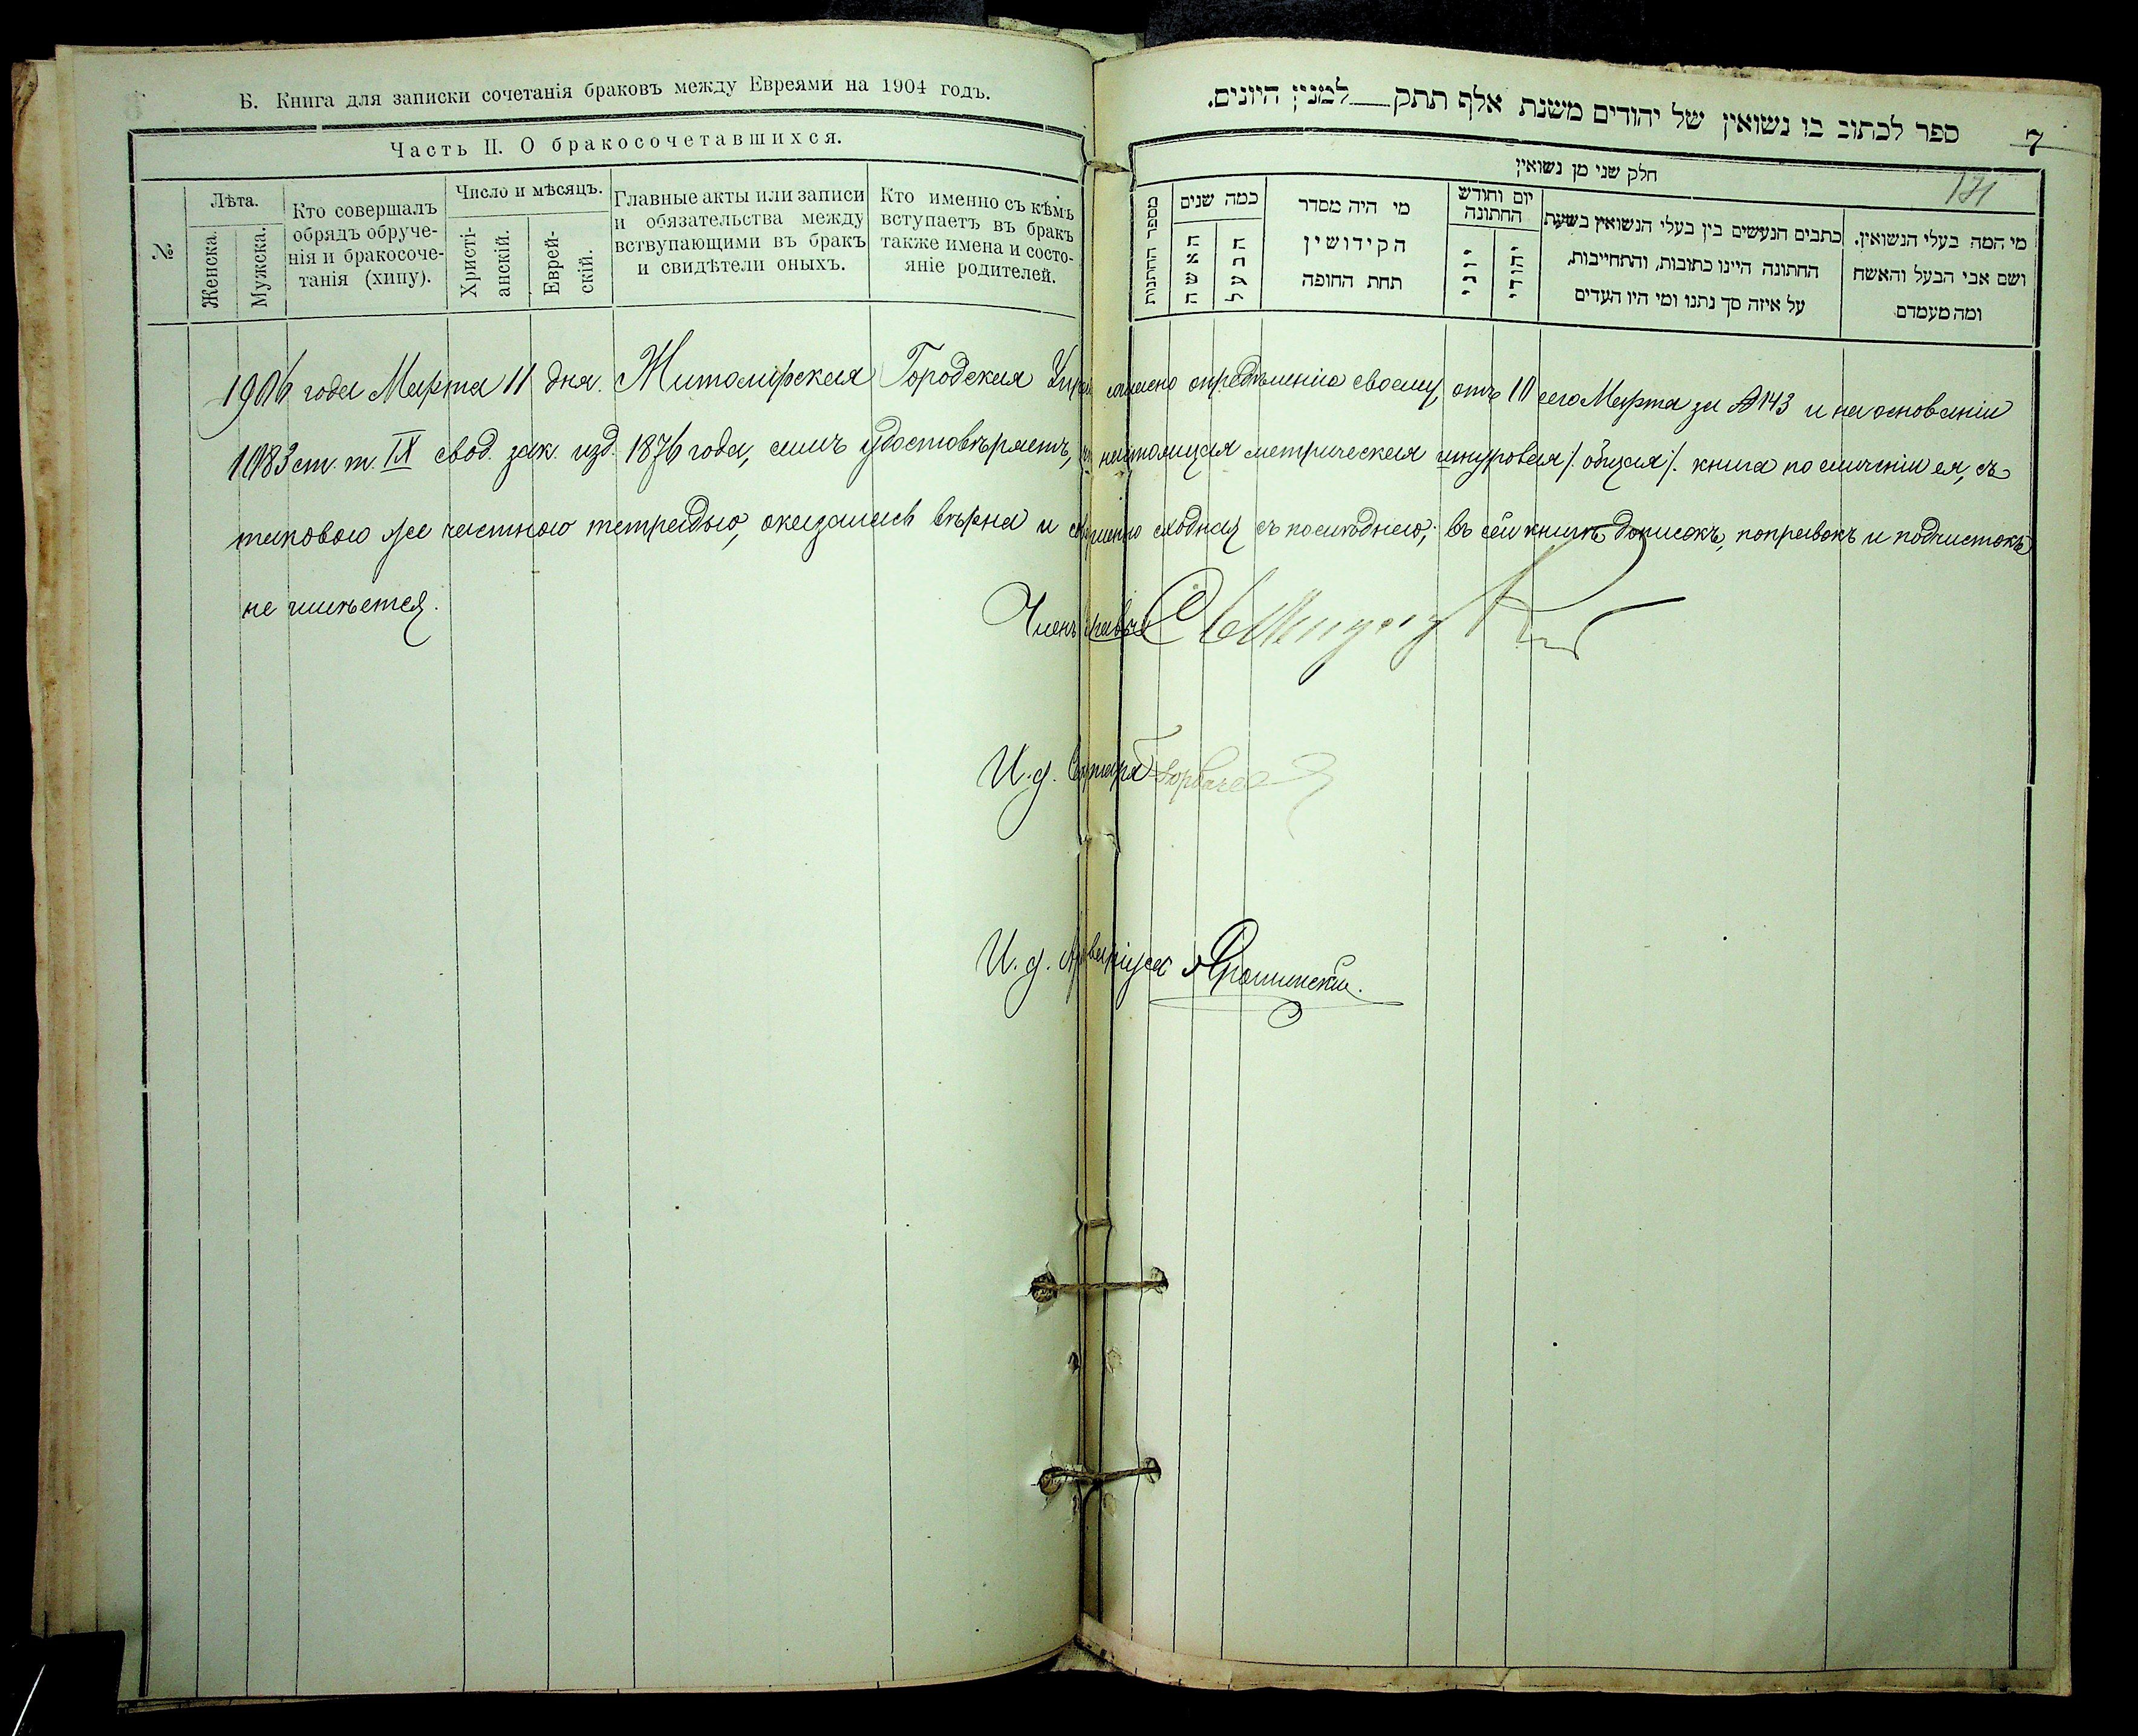 Б. Книга для записки сочетанія браковъ между Евреями на 1904 годъ.
Часть II. О бракосочетавшихся.
№
Лѣта.
Женска.
Мужска.
Кто совершалъ
обрядъ обруче-
нія и бракосоче-
танія (хипу).
Число и мѣсяцъ.
Христі-
анскій.
Еврей-
скій.
Главные акты или записи
и обязательства между
вствупающими въ бракъ
и свидѣтели оныхъ.
Кто именно съ кѣмъ
вступаетъ въ бракъ
также имена и состо-
яніе родителей.
ספר לכתוב בו נשואין של יהודים משנת אלף תתק למנין היונים.
7
חלק שני מן נשואין
171
מספר החתנות
כמה שנים
האשה
הבעל
מי היה מסדר
הקידושין
תחת החופה
יום וחודש
החתונה
יוני
יהודי
כתבים הנעשים בין בעלי הנשואין בשעת
החתונה היינו כתובות, והתחייבות,
על איזה סך נתנו ומי היו העדים
מי המה בעלי הנשואין.
ושם אבי הבעל והאשה
ומה מעמדם
1906 года Марта 11 дня. Житомирская Городская Управа согласно опредѣленію своему, отъ 10 сего Марта за № 143 и на основаніи
1083 ст. т. IX свод. зак. изд. 1876 года, симъ удостовѣряетъ, что настоящая метрическая шнуровая /: общая :/ книга по сличеніи ея, съ
таковою же частною тетрадью, оказалась вѣрна и совершенно сходная съ послѣднею; въ сей книгѣ дописокъ, поправокъ и подчистокъ
не имѣется.
Членъ Управы
И. д. Секретаря
И. д. Архиваріуса